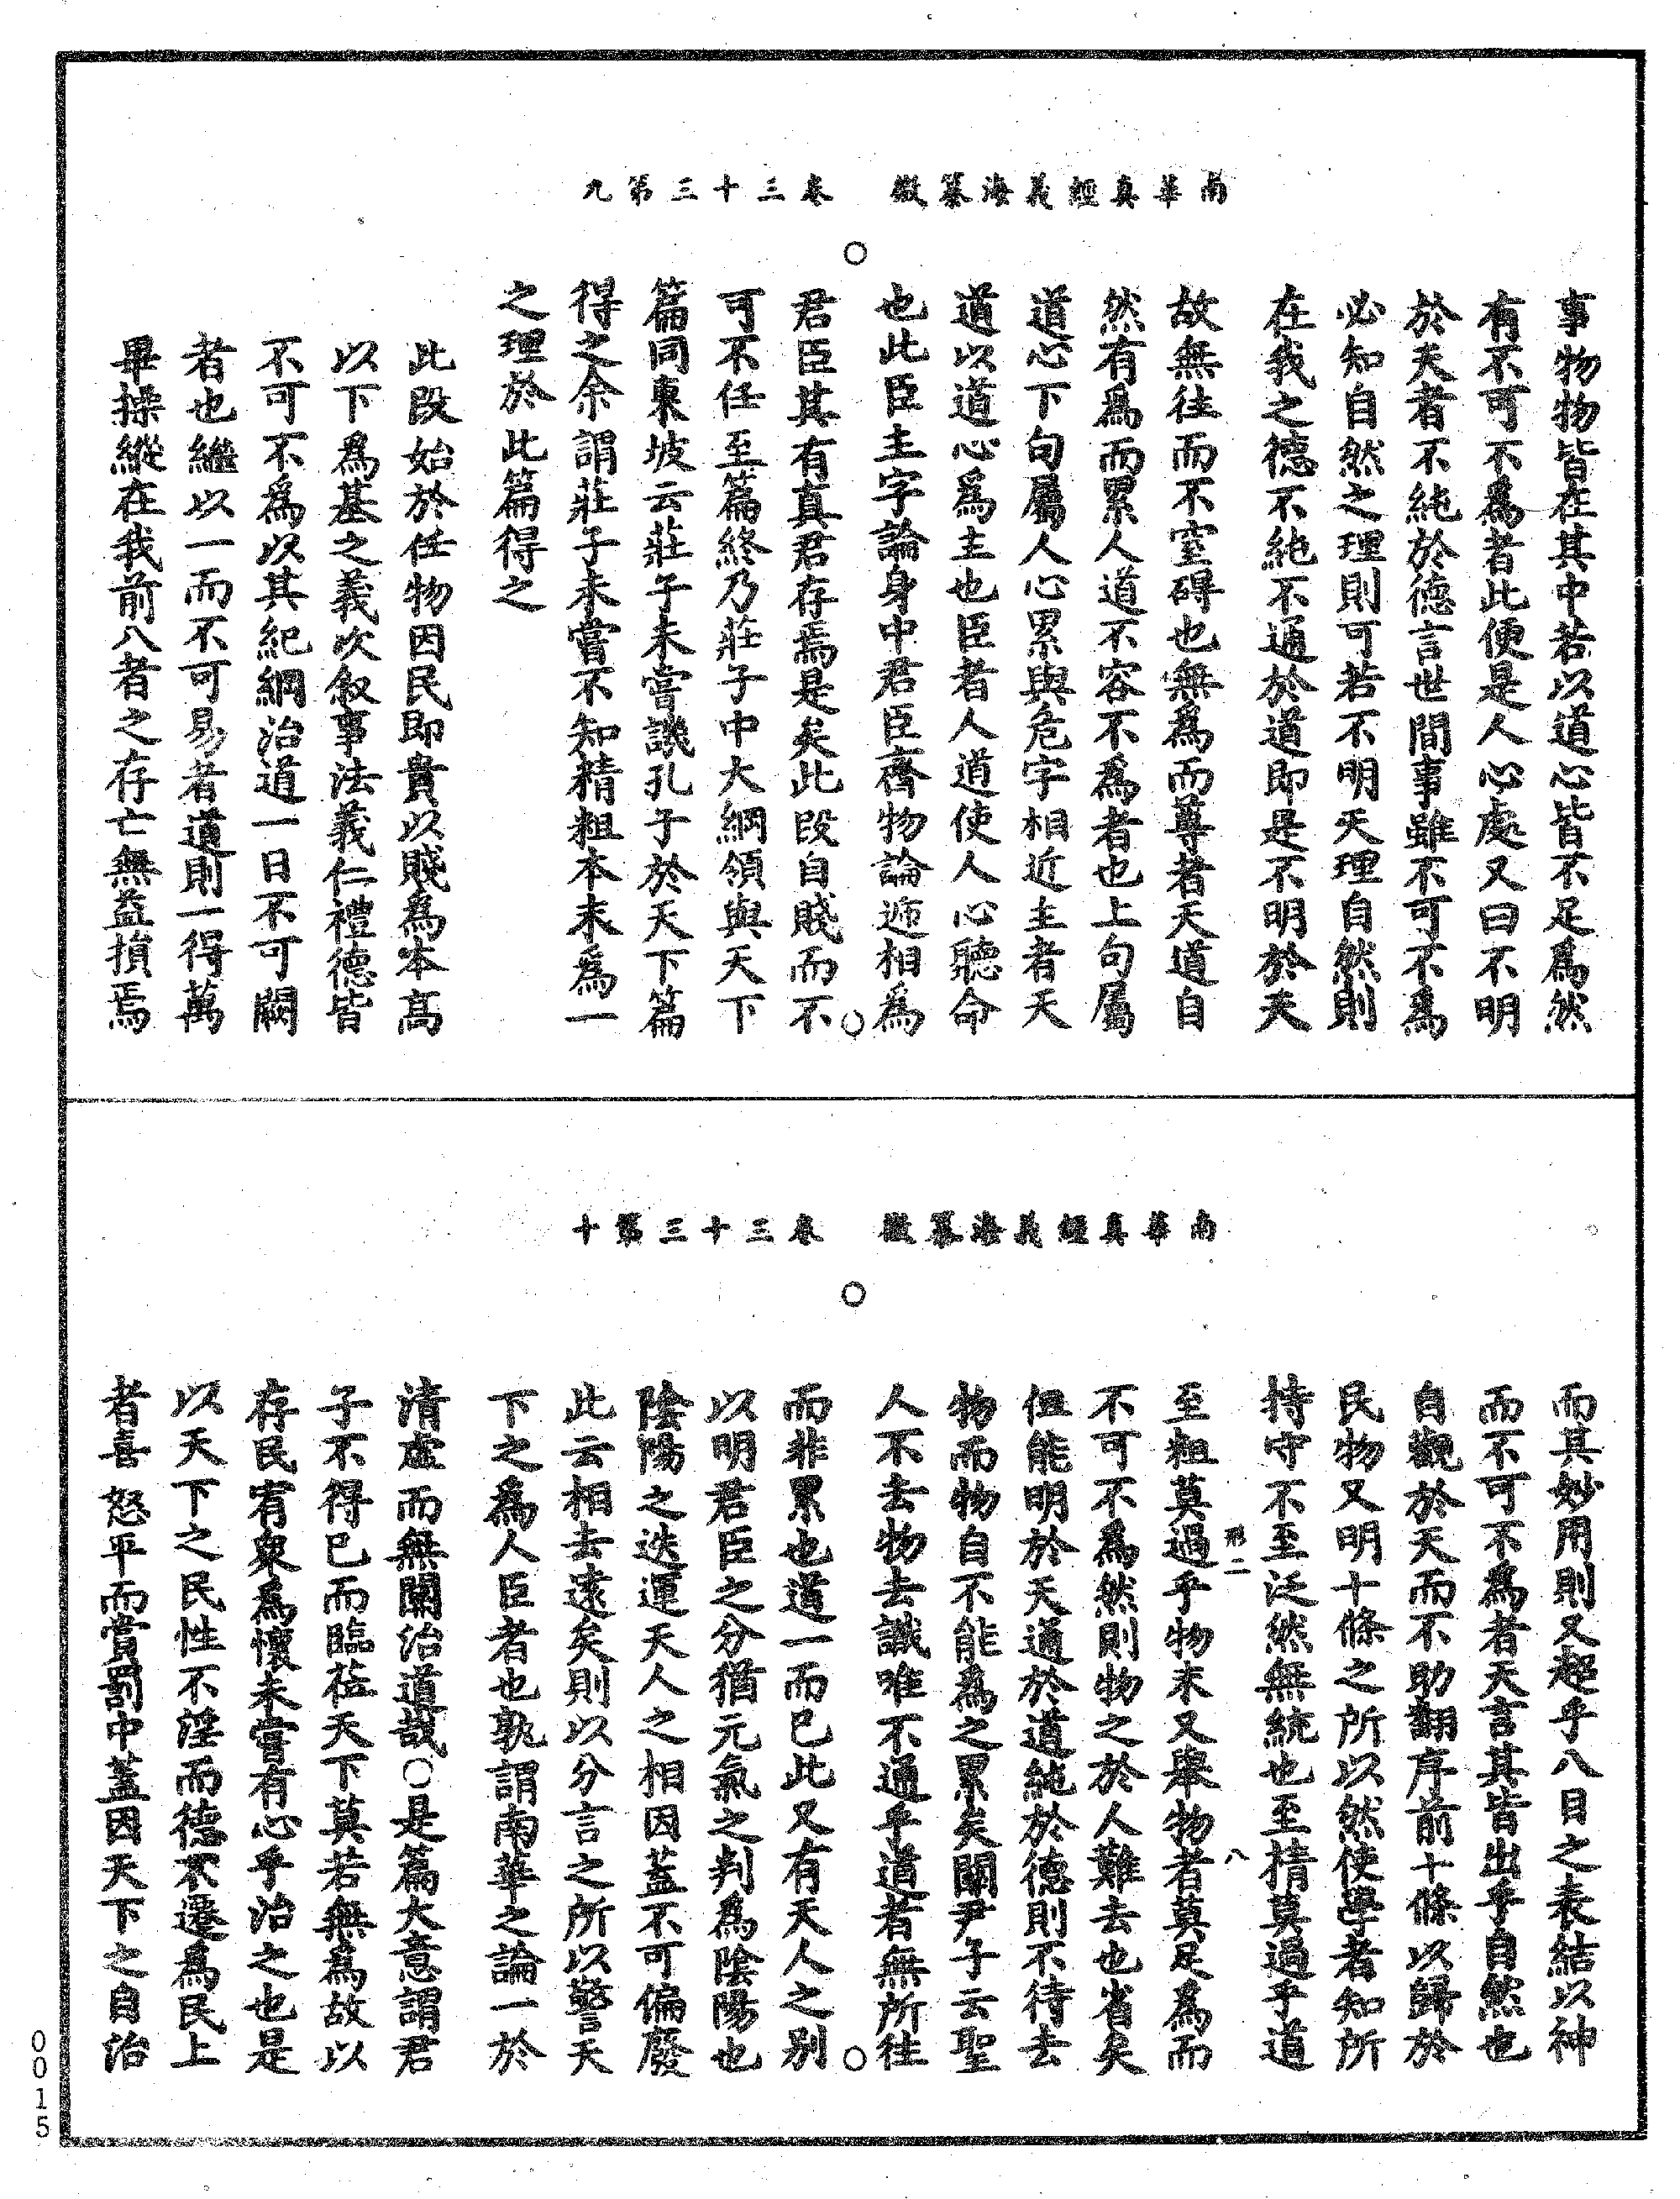 南華真經義海纂微　卷三十三第九
事物物皆在其中若以道心皆不足為然
有不可不為者此便是人心處又曰不明
於天者不純於德言世間事雖不可不為
必知自然之理則可若不明天理自然則
在我之德不純不通於道即是不明於天
故無往而不窒碍也無為而尊者天道自
然有為而累人道不容不為者也上句屬
道心下句屬人心累與危字相近主者天
道以道心為主也臣者人道使人心聽命
也此臣主字論身中君臣齊物論遞相為
君臣其有真君存焉是矣此段自賤而不
可不任至篇終乃莊子中大綱領與天下
篇同東坡云莊子未嘗譏孔子於天下篇
得之余謂莊子未嘗不知精粗本末為一
之理於此篇得之
此段始於任物因民即貴以賤為本高
以下為基之義次叙事法義仁禮德皆
不可不為以其紀綱治道一日不可闕
者也繼以一而不可易者道則一得萬
畢操縱在我前八者之存亡無益損焉
南華真經義海纂微　卷三十三第十
而其妙用則又超乎八目之表結以神
而不可不為者天言其皆出乎自然也
自觀於天而不助翻序前十條以歸於
民物又明十條之所以然使學者知所
持守不至泛然無統也至精莫過乎道
至粗莫過乎物末又舉物者莫足為而
不可不為然則物之於人難去也省矣
但能明於天通於道純於德則不待去
物而物自不能為之累矣關尹子云聖
人不去物去識唯不通乎道者無所往
而非累也道一而已此又有天人之別
以明君臣之分猶元氣之判為陰陽也
陰陽之迭運天人之相因蓋不可偏廢
此云相去遠矣則以分言之所以警天
下之為人臣者也孰謂南華之論一於
清虛而無關治道哉○是篇大意謂君
子不得已而臨莅天下莫若無為故以
存民宥衆為懷未嘗有心乎治之也是
以天下之民性不淫而德不遷為民上
者喜怒平而賞罰中蓋因天下之自治
二
八
0015